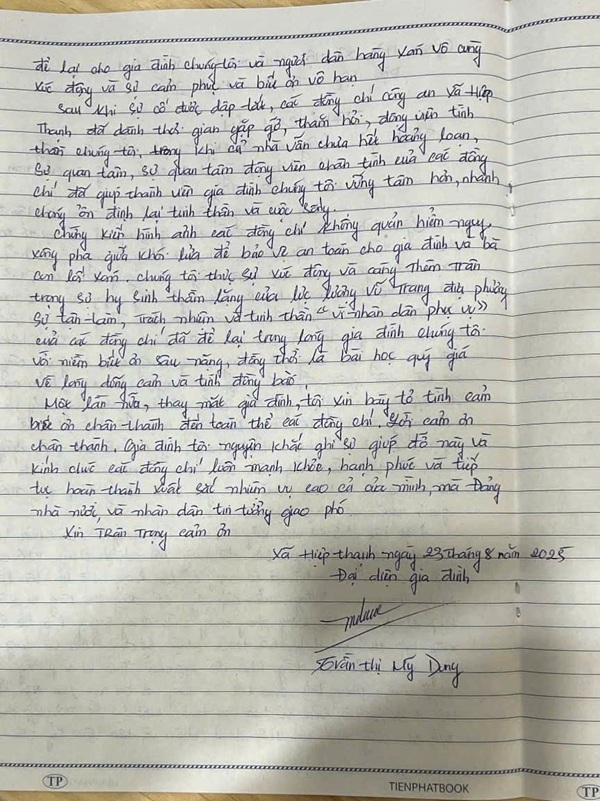 để lại cho gia đình chúng tôi và người dân hàng xóm vô cùng
xúc động và sự cảm phục và biết ơn vô hạn
Sau khi sự cố được dập tắt, các đồng chí công an xã Hiệp
Thạnh đã dành thời gian gặp gỡ, thăm hỏi, động viên tinh
thần chúng tôi, trong khi cả nhà vẫn chưa hết hoảng loạn,
sự quan tâm, sự quan tâm động viên chân tình của các đồng
chí đã giúp thành viên gia đình chúng tôi vững tâm hơn, nhanh
chóng ổn định lại tinh thần và cuộc sống.
Chứng kiến hình ảnh các đồng chí không quản hiểm nguy,
xông pha giữa khói lửa để bảo vệ an toàn cho gia đình và bà
con lối xóm, chúng tôi thực sự xúc động và càng Thêm Trân
trọng sự hy sinh thầm lặng của lực lượng Vũ Trang địa phương
Sự tận tâm, Trách nhiệm và tinh thần "vì nhân dân phục vụ"
của các đồng chí đã để lại trong lòng gia đình chúng tôi
với niềm biết ơn sâu nặng, đồng thời là bài học quý giá
về lòng đồng cảm và tình đồng bào.
Một lần nữa, thay mặt gia đình, tôi xin bày tỏ tình cảm
biết ơn chân thành đến toàn thể các đồng chí, lời cảm ơn
chân thành, Gia đình tôi nguyện khắc ghi sự giúp đỡ này và
kính chúc các đồng chí luôn mạnh khỏe, hạnh phúc và tiếp
tục hoàn thành xuất sắc nhiệm vụ cao cả của mình, mà Đảng
nhà nước, và nhân dân tin tưởng giao phó.
Xin Trân Trọng cảm ơn
Xã Hiệp thạnh ngày 23 tháng 8 năm 2025
Đại diện gia đình
Trần thị Mỹ Dung
TP
TIENPHATBOOK
TP